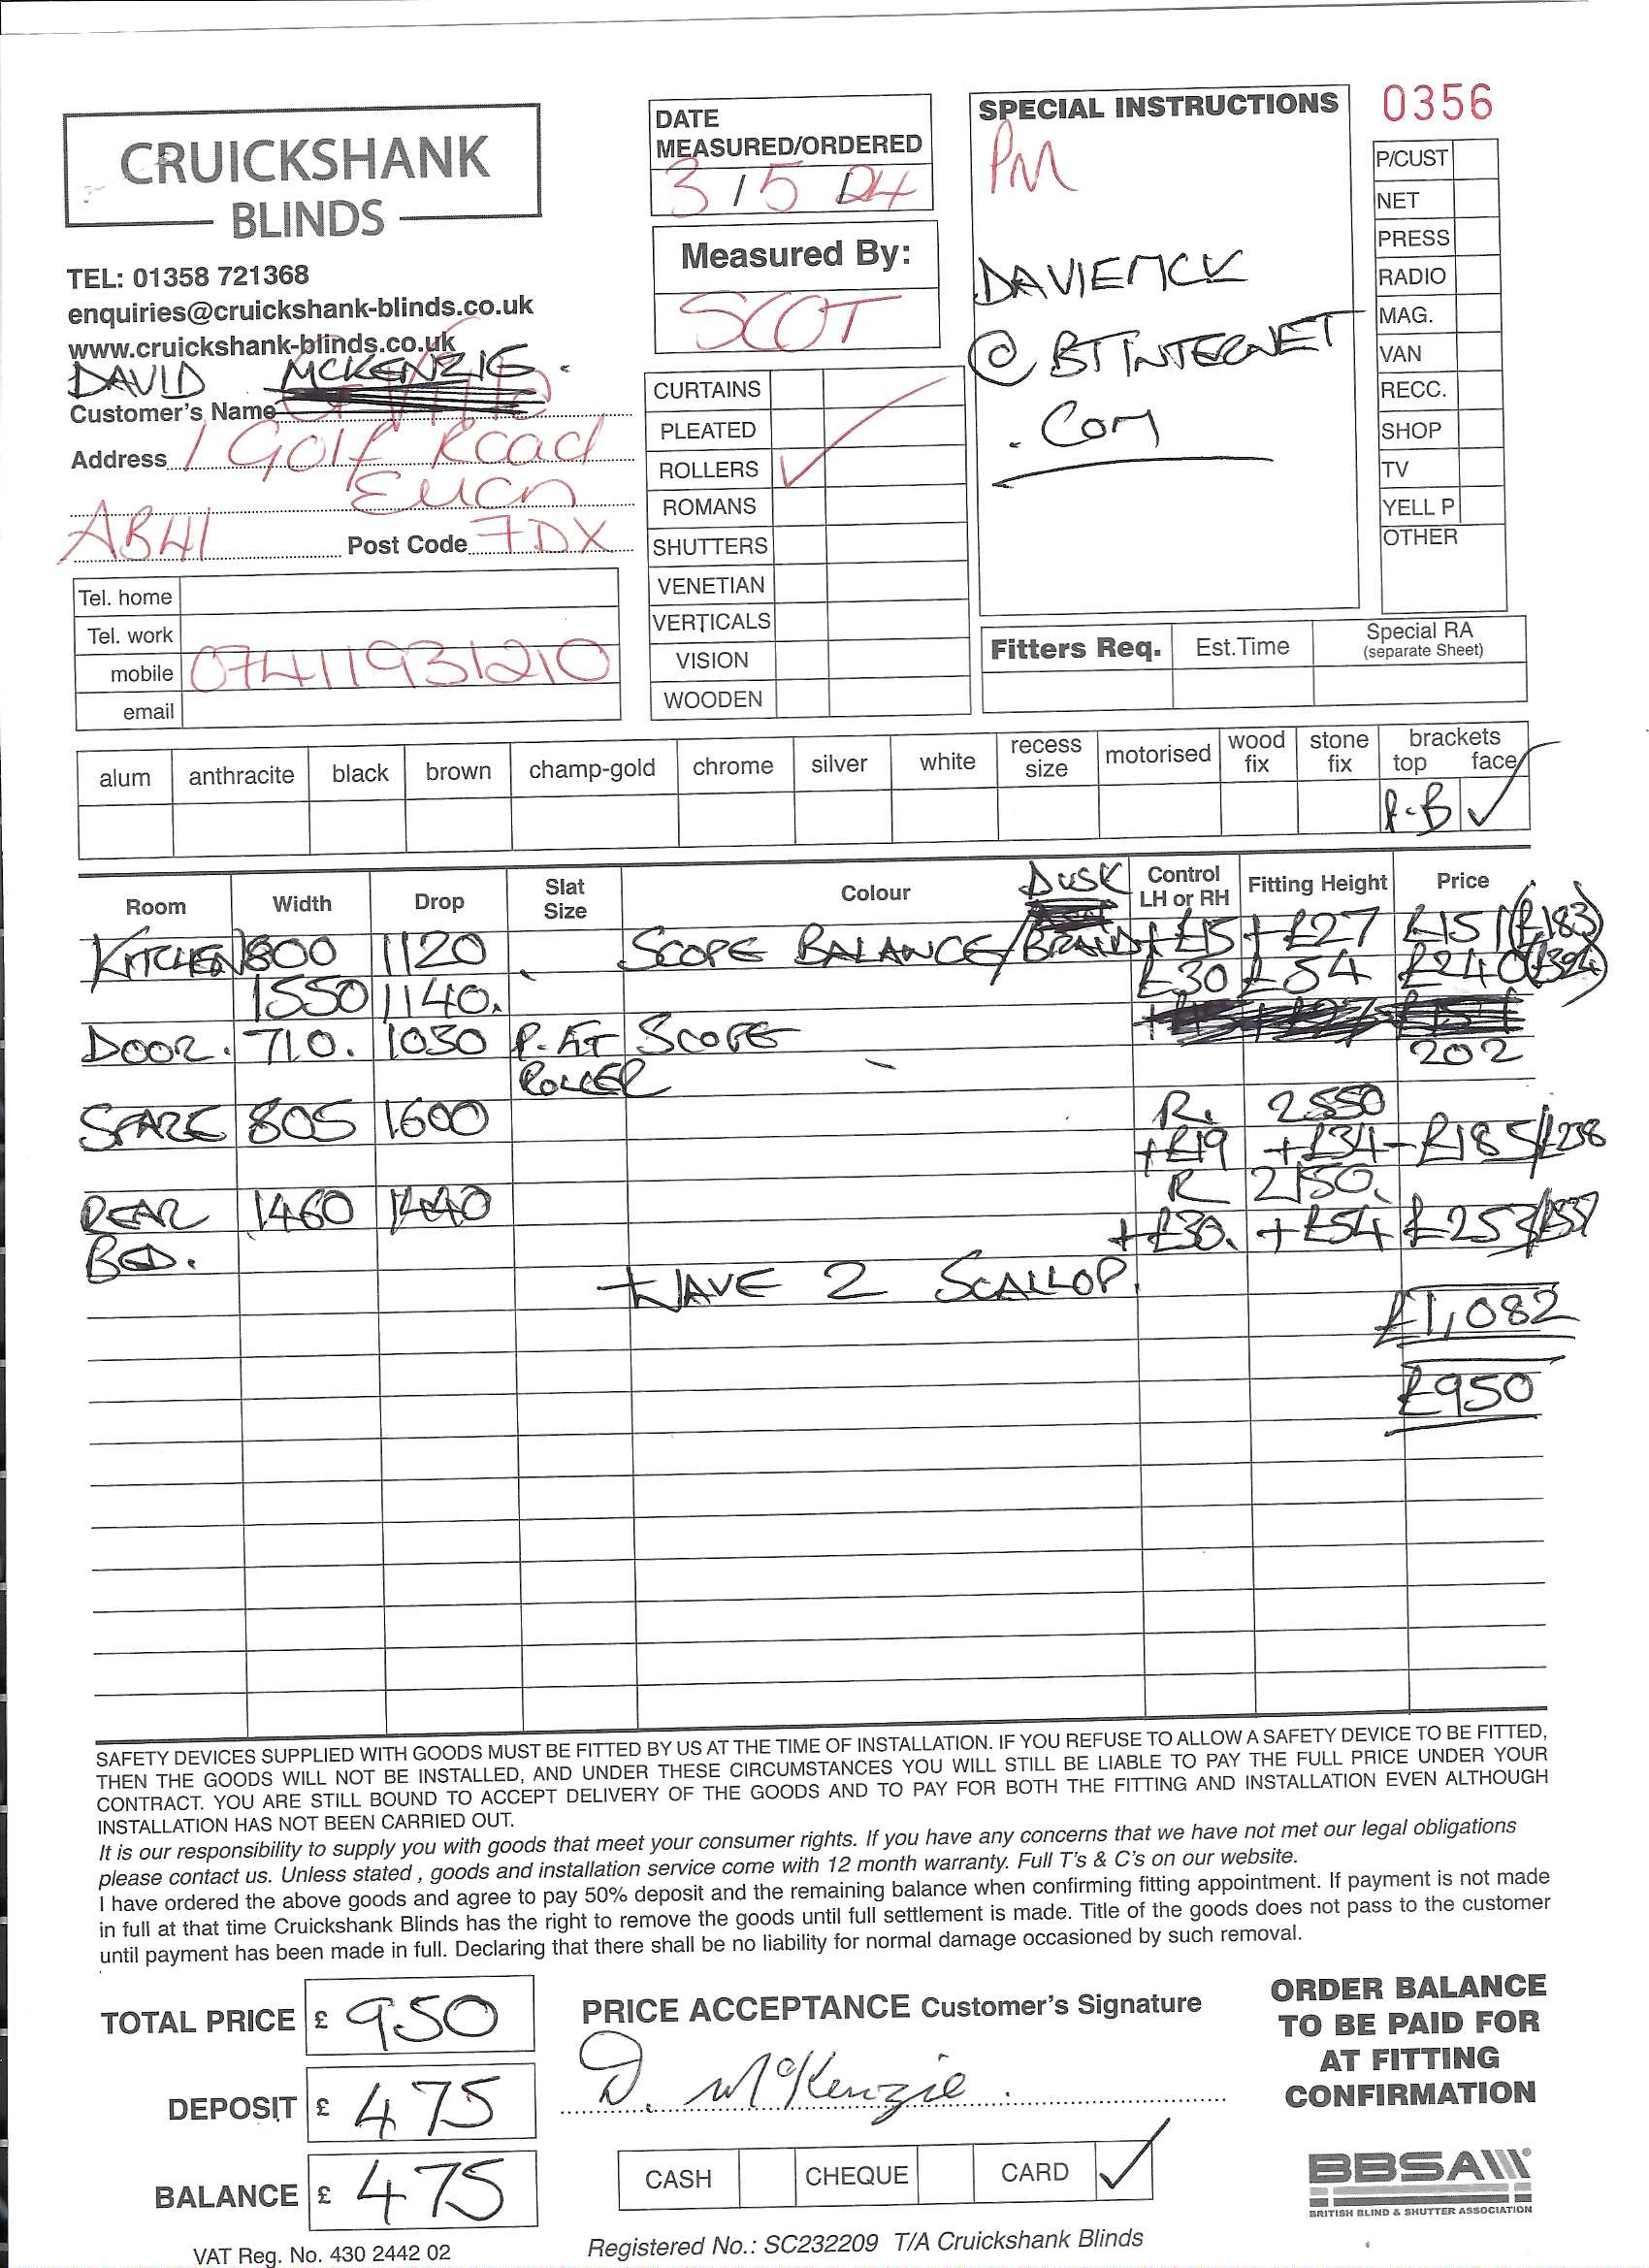 CRUICKSHANK
BLINDS
TEL: 01358 721368
enquiries@cruickshank-blinds.co.uk
www.cruickshank-blinds.co.uk
DAVID MCKENZIE.
Customer's Name
Address 1 Golf Road
Ellon
AB41 Post Code 7DX
Tel. home
Tel. work
mobile 07411931210
email
DATE
MEASURED/ORDERED
3/5 24
Measured By:
SCOT
CURTAINS
PLEATED
ROLLERS ✓
ROMANS
SHUTTERS
VENETIAN
VERTICALS
VISION
WOODEN
SPECIAL INSTRUCTIONS
PM
DAVIEMCK
@ BTINTERNET
.COM
0356
P/CUST
NET
PRESS
RADIO
MAG.
VAN
RECC.
SHOP
TV
YELL P
OTHER
Fitters Req. Est.Time Special RA
(separate Sheet)
alum anthracite black brown champ-gold chrome silver white recess size motorised wood fix stone fix brackets top face
✓
Room Width Drop Slat Size Colour DUSK Control LH or RH Fitting Height Price
KITCHEN 800 1120 SCOPE BALANCE/BRAID +£15 +£27 £151 (£183)
1550 1140. £30 £54 £240 (£324)
DOOR. 710. 1050 P. FIT SCOPE
ROLLER 202
SPARE 805 1600 R. 2550
+£19 +£34 - £185/£238
R 2150.
REAR 1460 1440
BED. +£30. +£54 £253/£337
WAVE 2 SCALLOP.
£1,082
£950
SAFETY DEVICES SUPPLIED WITH GOODS MUST BE FITTED BY US AT THE TIME OF INSTALLATION. IF YOU REFUSE TO ALLOW A SAFETY DEVICE TO BE FITTED,
THEN THE GOODS WILL NOT BE INSTALLED, AND UNDER THESE CIRCUMSTANCES YOU WILL STILL BE LIABLE TO PAY THE FULL PRICE UNDER YOUR
CONTRACT. YOU ARE STILL BOUND TO ACCEPT DELIVERY OF THE GOODS AND TO PAY FOR BOTH THE FITTING AND INSTALLATION EVEN ALTHOUGH
INSTALLATION HAS NOT BEEN CARRIED OUT.
It is our responsibility to supply you with goods that meet your consumer rights. If you have any concerns that we have not met our legal obligations
please contact us. Unless stated , goods and installation service come with 12 month warranty. Full T's & C's on our website.
I have ordered the above goods and agree to pay 50% deposit and the remaining balance when confirming fitting appointment. If payment is not made
in full at that time Cruickshank Blinds has the right to remove the goods until full settlement is made. Title of the goods does not pass to the customer
until payment has been made in full. Declaring that there shall be no liability for normal damage occasioned by such removal.
TOTAL PRICE £ 950
DEPOSIT £ 475
BALANCE £ 475
VAT Reg. No. 430 2442 02
PRICE ACCEPTANCE Customer's Signature
D. McKenzie
CASH CHEQUE CARD ✓
Registered No.: SC232209 T/A Cruickshank Blinds
ORDER BALANCE
TO BE PAID FOR
AT FITTING
CONFIRMATION
BBSA
BRITISH BLIND & SHUTTER ASSOCIATION